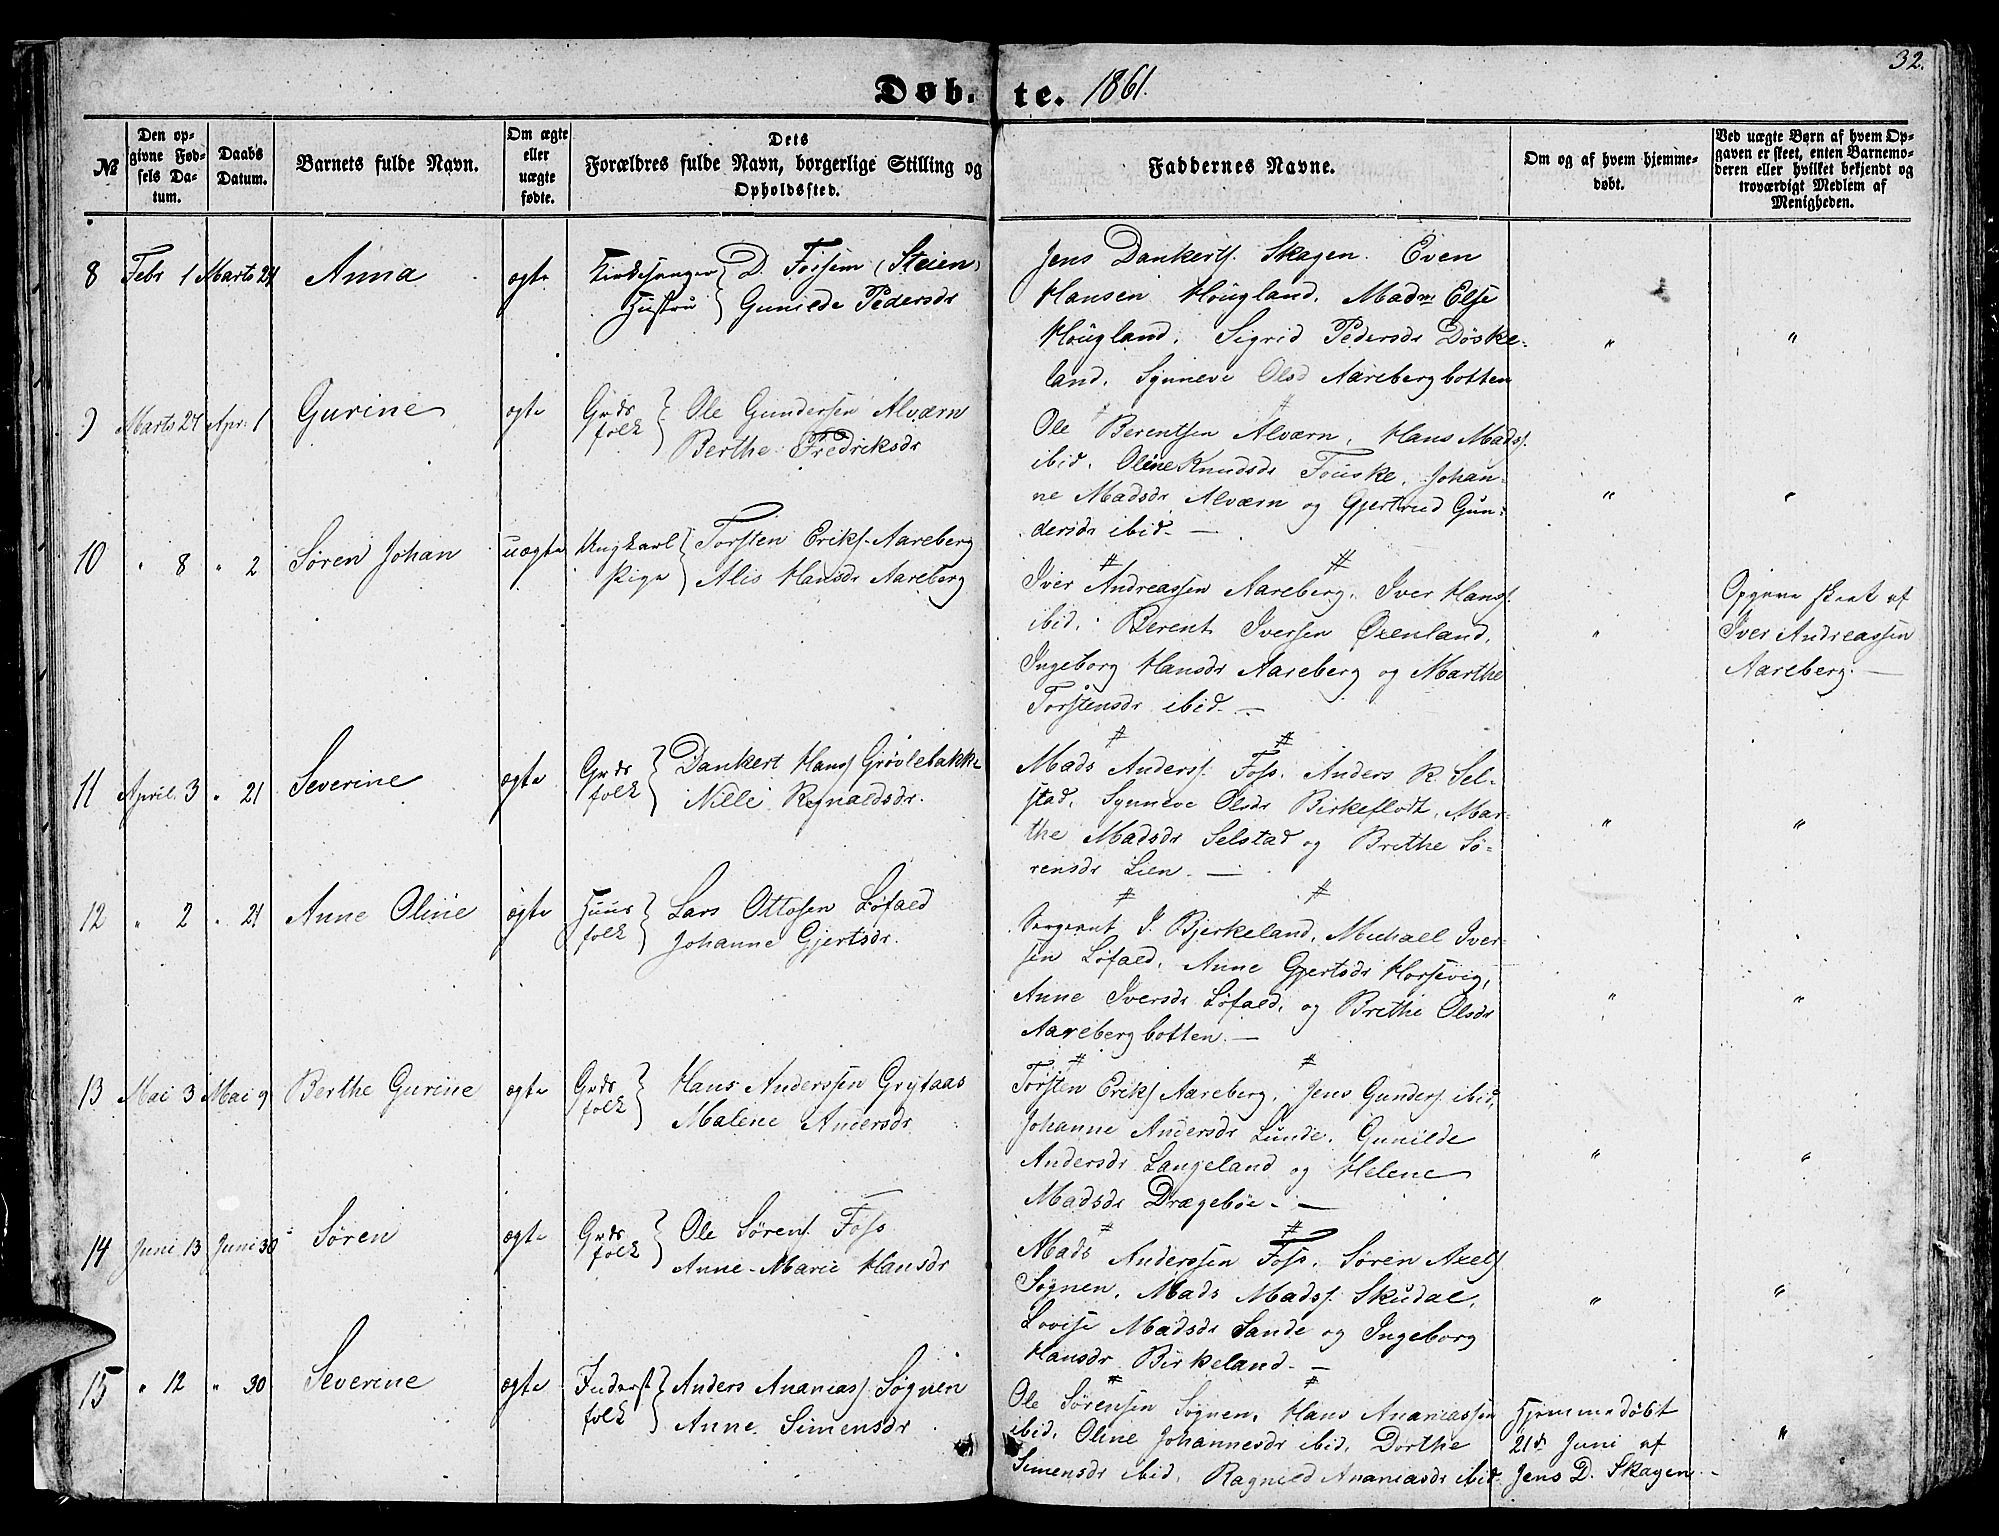 32.
Døb. te. 1861.
№
Den op-
givne Fød-
sels Da-
tum.
Daabs
Datum.
Barnets fulde Navn.
Om ægte
eller
uægte
fødte.
Dets
Forældres fulde Navn, borgerlige Stilling og
Opholdssted.
Faddernes Navne.
Om og af hvem hjemme-
døbt.
Ved uægte Børn af hvem Op-
gaven er skeet, enten Barnemo-
deren eller hvilket bekjendt og
troværdigt Medlem af
Menigheden.
8 Febr 1 Marts 24 Anna ægte Kirkesanger D. Førsem (Steien)
Hustru Gunilde Pedersdr
Jens Dankerts. Skagen. Even
Hansen Hougland, Madm Else
Hougland, Sigrid Pedersdr Døske-
land, Synneve Olsd Aarebergbotten
" "
9 Marts 27 Apr. 1 Gurine ægte Grds
folk Ole Gundersen Alværn
Berthe Fredriksdr
Ole Berentsen Alværn, Hans Mads.
ibid, Oline Knudsdr Fouske, Johan-
ne Madsdr Alværn og Gjertrud Gun-
dersdr ibid. —
" "
10 " 8 " 2 Søren Johan uægte Ungkarl Torsten Eriks. Aareberg
Pige Alis Hansdr Aareberg
Iver Andreassen Aareberg, Iver Hans.
ibid, Berent Iversen Øxenland,
Ingeborg Hansdr Aareberg og Marthe
Torstensdr ibid. —
"
Opgave skeet af
Iver Andreassen
Aareberg. —
11 April 3 " 21 Severine ægte Grds
folk Dankert Hans. Grøvlebakke
Nille Rognaldsdr.
Mads Anderss. Foss, Anders R. Sel-
stad, Synneve Olsdr Birkeflodt, Mar-
the Madsdr Selstad og Brithe Sø-
rensdr Lien. —
" "
12 " 2 " 21 Anne Oline ægte Huus
folk Lars Ottosen Løfald
Johanne Gjertsdr.
Sergeant J. Bjerkeland, Michael Iver-
sen Løfald, Anne Gjertsdr Horsevig,
Anne Iversdr Løfald, og Brithe Olsdr
Aarebergbotten. —
" "
13 Mai 3 Mai 9 Berthe Gurine ægte Grds
folk Hans Anderssen Grytaas
Malene Andersdr
Torsten Eriks. Aareberg, Jens Gunders. ibid,
Johanne Andersdr Lunde, Gunilde
Andersdr Langeland og Helene
Madsdr Drægebøe. —
" "
14 Juni 13 Juni 30 Søren ægte Grds
folk Ole Sørens. Foss
Anne Marie Hansdr
Mads Anderssen Foss, Søren Axels.
Søgnen, Mads Mads. Skudal,
Lovise Madsdr Sande og Ingeborg
Hansdr Birkeland. —
" "
15 " 12 " 30 Severine ægte Inderst
folk Anders Ananias. Søgnen
Anne Simensdr
Ole Sørensen Søgnen, Hans Ananiassen
ibid, Oline Johannesdr ibid, Dorthe
Simensdr ibid, Ragnild Ananiasdr ibid
Hjemmedøbt
21de Juni af
Jens D. Skagen. —
"